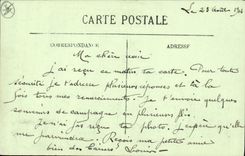 Le 28 Août 1914
CARTE POSTALE
CORRESPONDANCE
ADRESSE
Ma chère
j'ai reçu ce matin ta carte. Pour toute
sécurité je t'adresse plusieurs réponses et à la
fois tous mes remerciements. Je t'envoie quelques
souvenirs de campagne en plusieurs fois.
Je n'ai pas reçu photo. J'espère qu'elle
me parviendra. Reçois ma petite amie
bien des baisers Louis